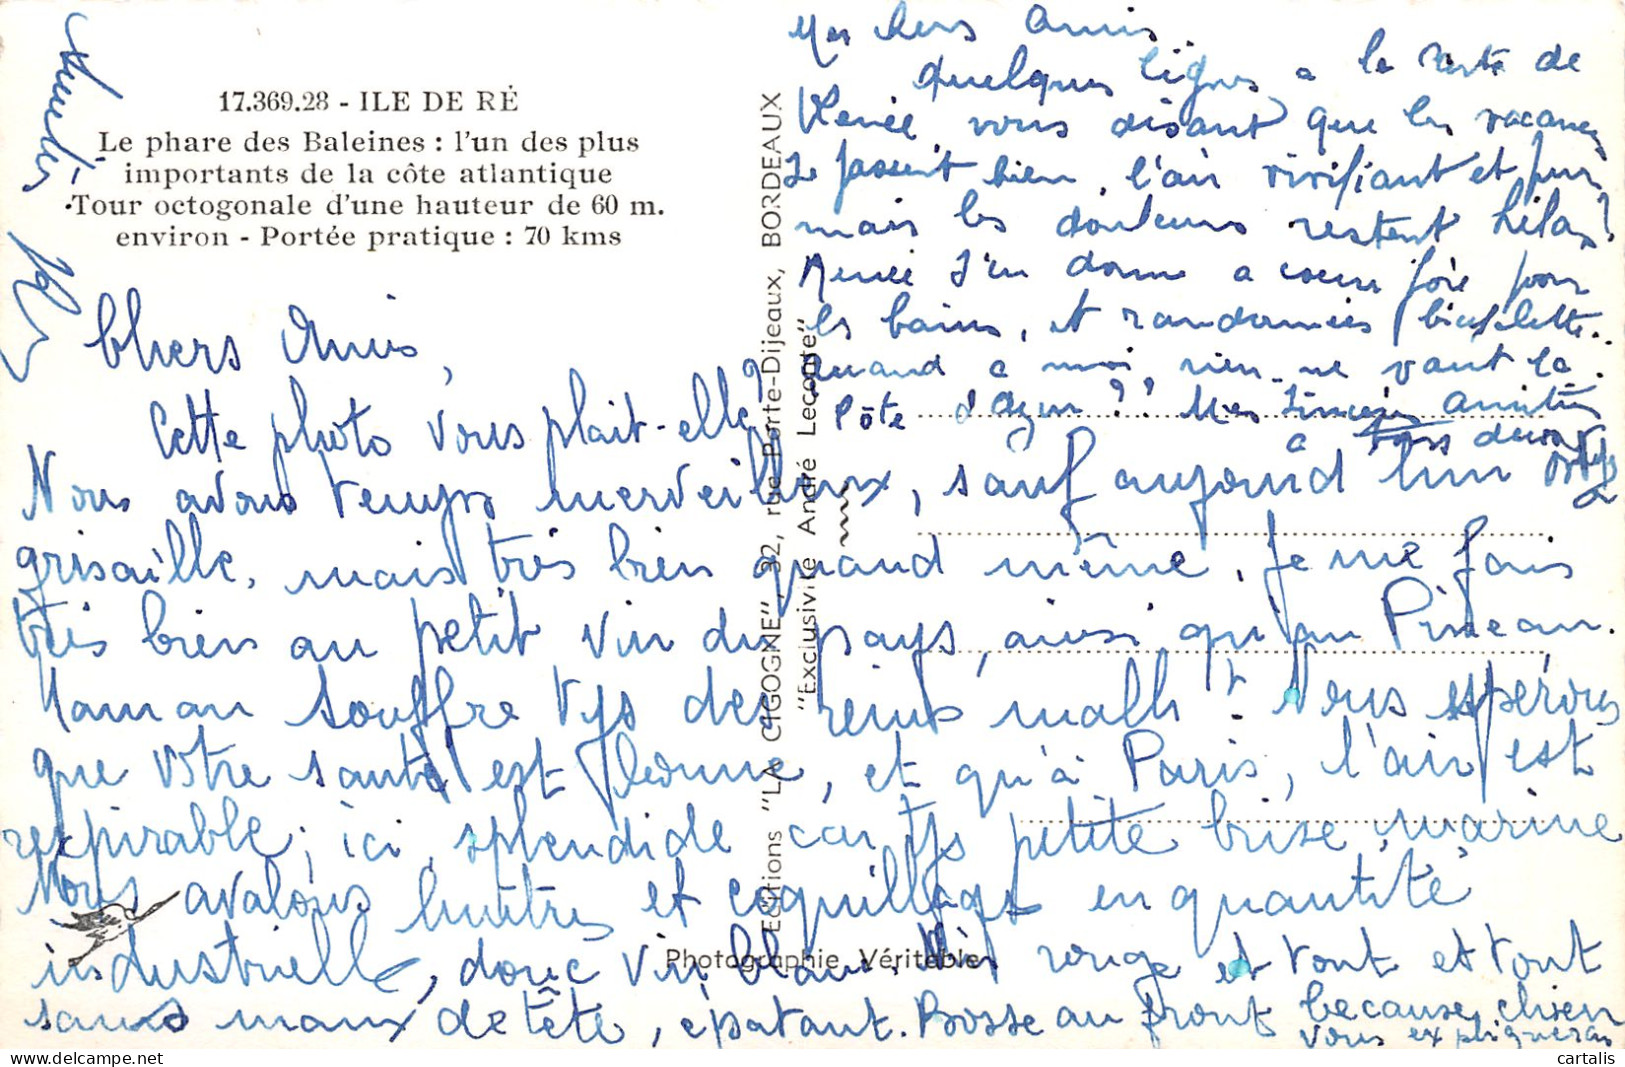 17.369.28 - ILE DE RÉ
Le phare des Baleines : l'un des plus
importants de la côte atlantique
Tour octogonale d'une hauteur de 60 m.
environ - Portée pratique : 70 kms
Mes chers Amis.
Quelques lignes a la suite de
Renée vous disant que les vacances
se passent bien, l'air vivifiant et pur,
mais les douleurs restent hélas!
Renée s'en donne a coeur joie pour
les bains, et randonnées bicyclette.
Quand a moi, rien ne vaut la
Côte d'Azur?? Mes sincères amitiés
a tous deux
Chers Amis,
Cette photo vous plait-elle?
Nous avons temps merveilleux, sauf aujourd'hui
grisaille, mais très bien quand même. Je me fais
très bien au petit vin du pays, ainsi qu'au Pineau.
Maman souffre tjs des reins malh^t. Nous espérons
que votre santé est bonne, et qu'à Paris, l'air est
respirable; ici, splendide car tjs petite brise marine
Nous avalons huîtres et coquillages en quantité
industrielle, donc vin blanc, vin rouge et tout et tout
sans maux de tête, épatant. Bosse au front because chien
vous expliquerai
Amitiés
Editions "LA CIGOGNE", 32, rue Porte-Dijeaux, BORDEAUX
"Exclusivité André Leconte"
Photographie Véritable
cartalis